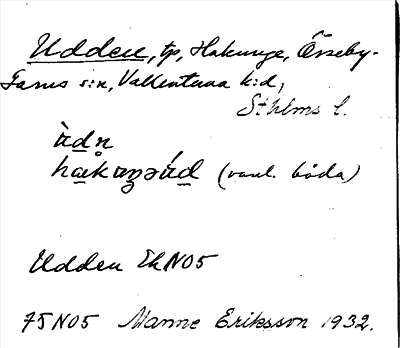 Udden, tp, Hakunge, Össeby-
Garns s:n, Vallentuna h:d,
Sthlms l.
ùdn̥
(vanl. båda)
Udden Ek NO5
75 NO5 Manne Eriksson 1932.